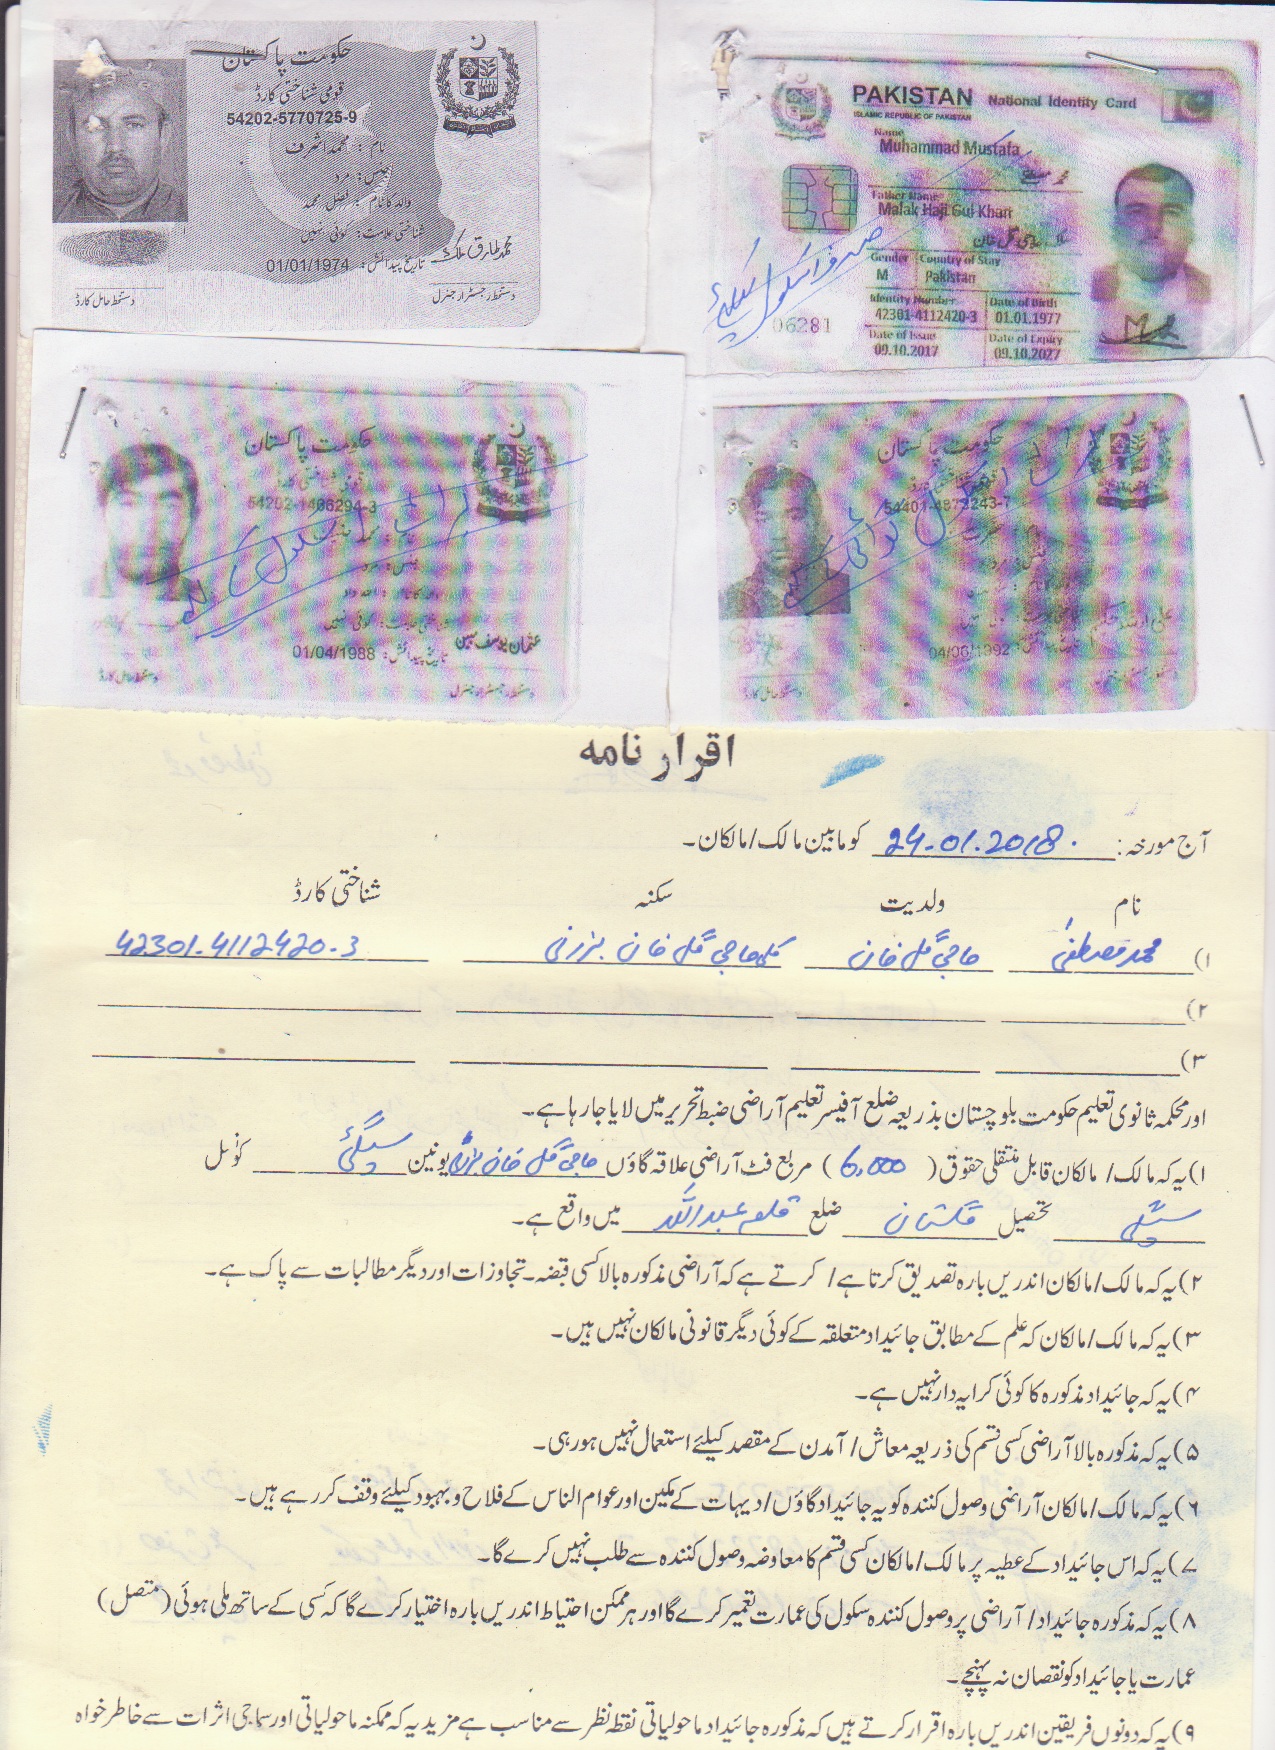 حکومت پاکستان
قومی شناختی کارڈ
54202-5770725-9
نام : محمد اشرف
جنس : مرد
والد کا نام : فضل محمد
شناختی علامت : کوئی نہیں
تاریخ پیدائش : 01/01/1974
محمد طارق ملک
دستخط حامل کارڈ
دستخط رجسٹرار جنرل
PAKISTAN National Identity Card
ISLAMIC REPUBLIC OF PAKISTAN
Name
Muhammad Mustafa
محمد مصطفےٰ
Father Name
Malak Haji Gul Khan
ملک حاجی گل خان
Gender Country of Stay
M Pakistan
Identity Number Date of Birth
42301-4112420-3 01.01.1977
Date of Issue Date of Expiry
09.10.2017 09.10.2027
06281
حکومت پاکستان
قومی شناختی کارڈ
54202-1406294-3
جنس : مرد
شناختی علامت : کوئی نہیں
تاریخ پیدائش : 01/04/1988
عثمان یوسف مبین
دستخط حامل کارڈ
دستخط رجسٹرار جنرل
حکومت پاکستان
تاریخ پیدائش : 04/06/1992
دستخط حامل کارڈ
اقرار نامہ
آج مورخہ : 24.01.2018 کو مابین مالک/مالکان۔
نام ولدیت سکنہ شناختی کارڈ
۱) محمد مصطفیٰ حاجی گل خان کلی حاجی گل خان 42301-4112420-3
۲)
۳)
اور محکمہ ثانوی تعلیم حکومت بلوچستان بذریعہ ضلع آفیسر تعلیم آراضی ضبط تحریر میں لایا جا رہا ہے۔
۱) یہ کہ مالک/ مالکان قابل منتقلی حقوق ( 6,000 ) مربع فٹ آراضی علاقہ گاؤں حاجی گل خان یونین سیگئی کونسل
تحصیل گلستان ضلع قلعہ عبداللہ میں واقع ہے۔
۲) یہ کہ مالک/مالکان اندریں بارہ تصدیق کرتا ہے/ کرتے ہے کہ آراضی مذکورہ بالا کسی قبضہ۔ تجاوزات اور دیگر مطالبات سے پاک ہے۔
۳) یہ کہ مالک/مالکان کہ علم کے مطابق جائیداد متعلقہ کے کوئی دیگر قانونی مالکان نہیں ہیں۔
۴) یہ کہ جائیداد مذکورہ کا کوئی کرایہ دار نہیں ہے۔
۵) یہ کہ مذکورہ بالا آراضی کسی قسم کی ذریعہ معاش/ آمدن کے مقصد کیلئے استعمال نہیں ہو رہی۔
۶) یہ کہ مالک/مالکان آراضی وصول کنندہ کو یہ جائیداد گاؤں/ دیہات کے مکین اور عوام الناس کے فلاح و بہبود کیلئے وقف کر رہے ہیں۔
۷) یہ کہ اس جائیداد کے عطیہ پر مالک/مالکان کسی قسم کا معاوضہ وصول کنندہ سے طلب نہیں کرے گا۔
۸) یہ کہ مذکورہ جائیداد/ آراضی پر وصول کنندہ سکول کی عمارت تعمیر کرے گا اور ہر ممکن احتیاط اندریں بارہ اختیار کرے گا کہ کسی کے ساتھ ملی ہوئی (متصل)
عمارت یا جائیداد کو نقصان نہ پہنچے۔
۹) یہ کہ دونوں فریقین اندریں بارہ اقرار کرتے ہیں کہ مذکورہ جائیداد ماحولیاتی نقطہ نظر سے مناسب ہے مزید یہ کہ ممکنہ ماحولیاتی اور سماجی اثرات سے خاطر خواہ